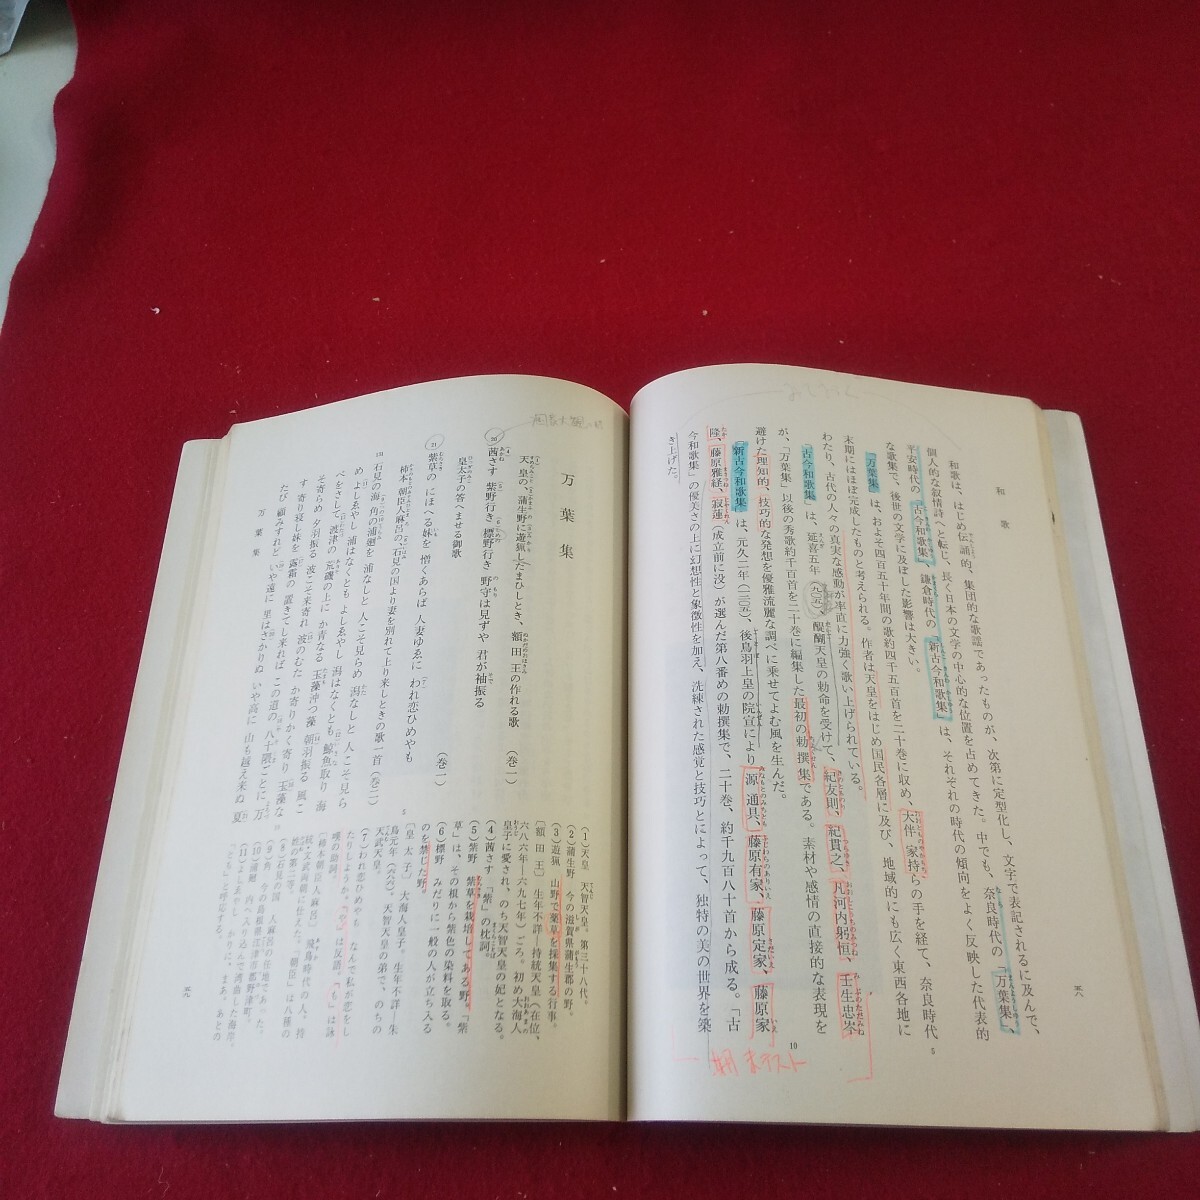 和歌
和歌は、はじめ伝誦的、集団的な歌謡であったものが、次第に定型化し、文字で表記されるに及んで、
個人的な叙情詩へと転じ、長く日本の文学の中心的な位置を占めてきた。中でも、奈良時代の『万葉集』、
平安時代の『古今和歌集』、鎌倉時代の『新古今和歌集』は、それぞれの時代の傾向をよく反映した代表的
な歌集で、後世の文学に及ぼした影響は大きい。
『万葉集』は、およそ四百五十年間の歌約四千五百首を二十巻に収め、大伴家持らの手を経て、奈良時代
末期にはほぼ完成したものと考えられる。作者は天皇をはじめ国民各層に及び、地域的にも広く東西各地に
わたり、古代の人々の真実な感動が率直に力強く歌い上げられている。
『古今和歌集』は、延喜五年(九〇五)、醍醐天皇の勅命を受けて、紀友則、紀貫之、凡河内躬恒、壬生忠岑
が、『万葉集』以後の秀歌約千百首を二十巻に編集した最初の勅撰集である。素材や感情の直接的な表現を
避けた理知的、技巧的な発想を優雅流麗な調べに乗せてよむ風を生んだ。
『新古今和歌集』は、元久二年(一二〇五)、後鳥羽上皇の院宣により源通具、藤原有家、藤原定家、藤原家
隆、藤原雅経、寂蓮(成立前に没)が選んだ第八番めの勅撰集で、二十巻、約千九百八十首から成る。『古
今和歌集』の優美さの上に幻想性と象徴性を加え、洗練された感覚と技巧とによって、独特の美の世界を築
き上げた。
5
10
五八
朝 テスト
万葉集
天皇の、蒲生野に遊猟したまひしとき、額田王の作れる歌
20 茜さす 紫野行き 標野行き 野守は見ずや 君が袖振る (巻一)
皇太子の答へませる御歌
21 紫草の にほへる妹を 憎くあらば 人妻ゆゑに われ恋ひめやも (巻一)
柿本朝臣人麻呂の、石見の国より妻を別れて上り来しときの歌一首(巻二)
131 石見の海 角の浦廻を 浦なしと 人こそ見らめ 潟なしと 人こそ見ら
め よしゑやし 浦はなくとも よしゑやし 潟はなくとも 鯨魚取り 海
べをさして 渡津の 荒磯の上に か青なる 玉藻沖つ藻 朝羽振る 風こ
そ寄らめ 夕羽振る 波こそ来寄れ 波のむた か寄りかく寄り 玉藻な
す 寄り寝し妹を 露霜の 置きてし来れば この道の 八十隈ごとに 万
たび 顧みすれど いや遠に 里はさかりぬ いや高に 山も越え来ぬ 夏
万葉集
(1) 天皇 天智天皇。第三十八代。
(2) 蒲生野 今の滋賀県蒲生郡の野。
(3) 遊猟 山野で薬草を採集する行事。
〔額田王〕 生年不詳―持統天皇(在位、
六八六年―六九七年)ごろ。初め大海人
皇子に愛され、のち天智天皇の妃となる。
(4) 茜さす 「紫」の枕詞。
(5) 紫野 紫草を栽培してある野。「紫
草」は、その根から紫色の染料を取る。
(6) 標野 みだりに一般の人が立ち入る
のを禁じた野。
〔皇太子〕 大海人皇子。生年不詳―朱
鳥元年(六八六)。天智天皇の弟で、のちの
天武天皇。
(7) われ恋ひめやも なんで私が恋をし
たりしようか。「や」は反語、「も」は詠
嘆の助詞。
五九